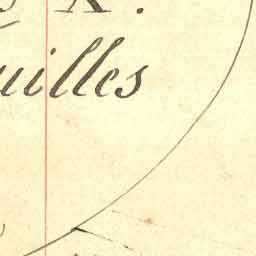 X.
uilles